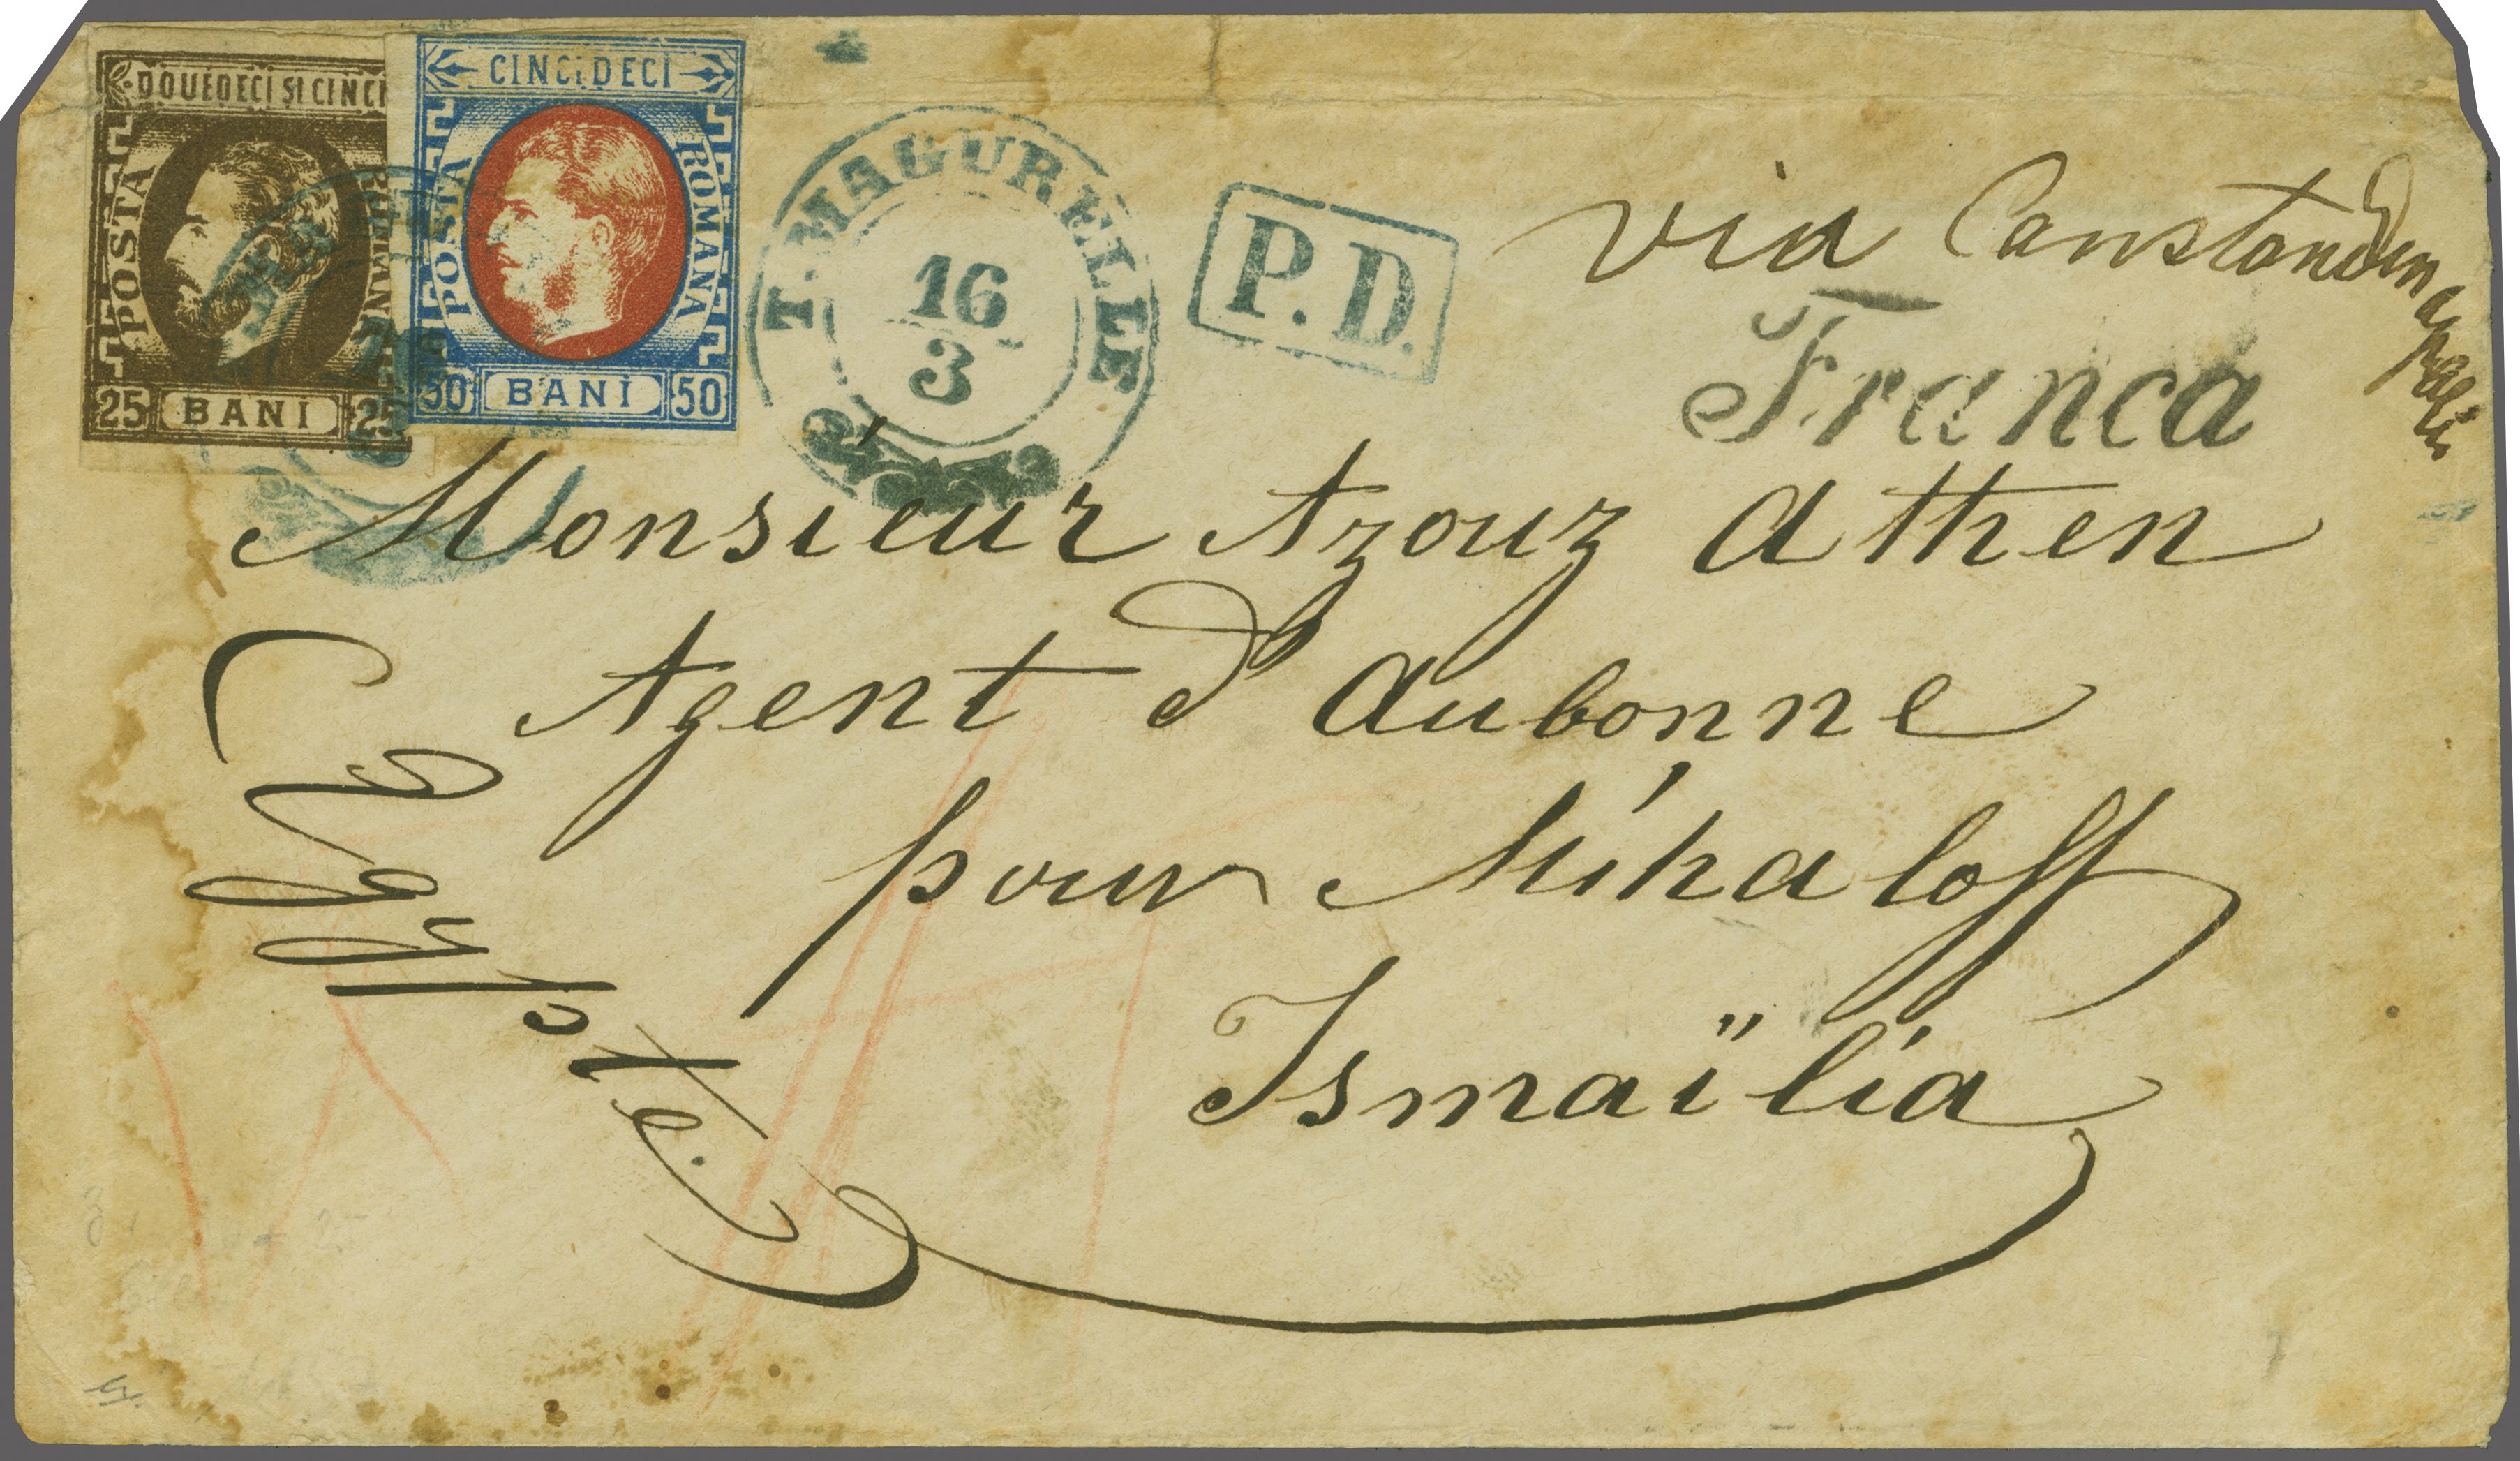 DOUEDECI ȘI CINCI
POSTA
ROMANA
25 BANI 25
CINCI DECI
POSTA
ROMANA
50 BANI 50
T. MAGURELLE
16
3
P.D.
via Constandinapoli
Franca
Monsieur Azouz Athen
Agent d'Aubonne
pour Mihaloff
Ismaïlia
Egypte.